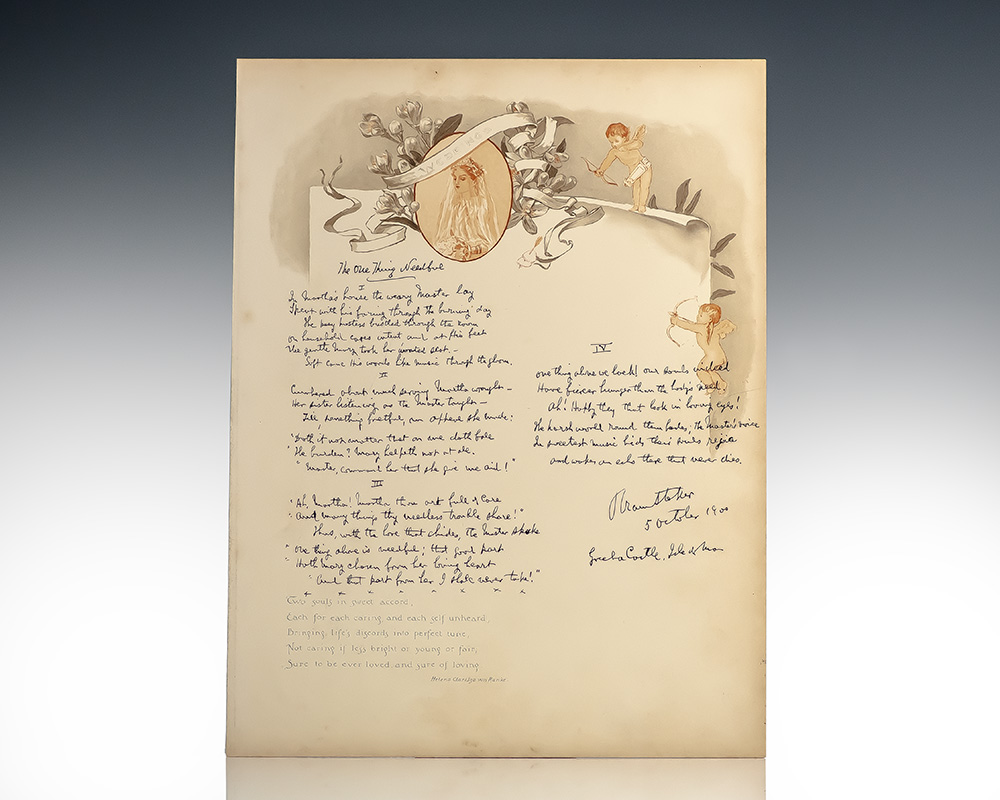 The One Thing Needful
I
In Martha's house the weary Master lay
Spent with his faring through the burning day
The busy hostess bustled through the room
On household cares intent and at His feet
The gentle Mary took her wonted seat. –
Soft came His words like music through the gloom.
II
Cumbered about much serving Martha wrought –
Her sister listening as the Master taught –
Till, something fretful, an appeal she made:
"Doth it not matter that on me doth fall
"The burden? Mary helpeth not at all.
"Master, command her that she give me aid!"
III
"Ah, Martha! Martha thou art full of care
"And many things thy needless trouble share!"
Thus, with the love that chides, the Master spake
"One thing alone is needful; that good part
"Hath Mary chosen from her loving heart
"And that part from her I shall never take!"
x x x x x x x x
Two souls in sweet accord,
Each for each caring, and each self unheard,
Bringing life's discords into perfect tune,
Not caring if less bright or young or fair,
Sure to be ever loved, and sure of loving
IV
One thing alone we lack! Our souls indeed
Have fiercer hunger than the body's need.
Ah! Happy they that look in loving eyes!
The harsh world round them fades; the Master's voice
In sweetest music bids their souls rejoice
and wakes an echo there that never dies.
Bram Stoker
5 October 1900
Greeba Castle, Isle of Man